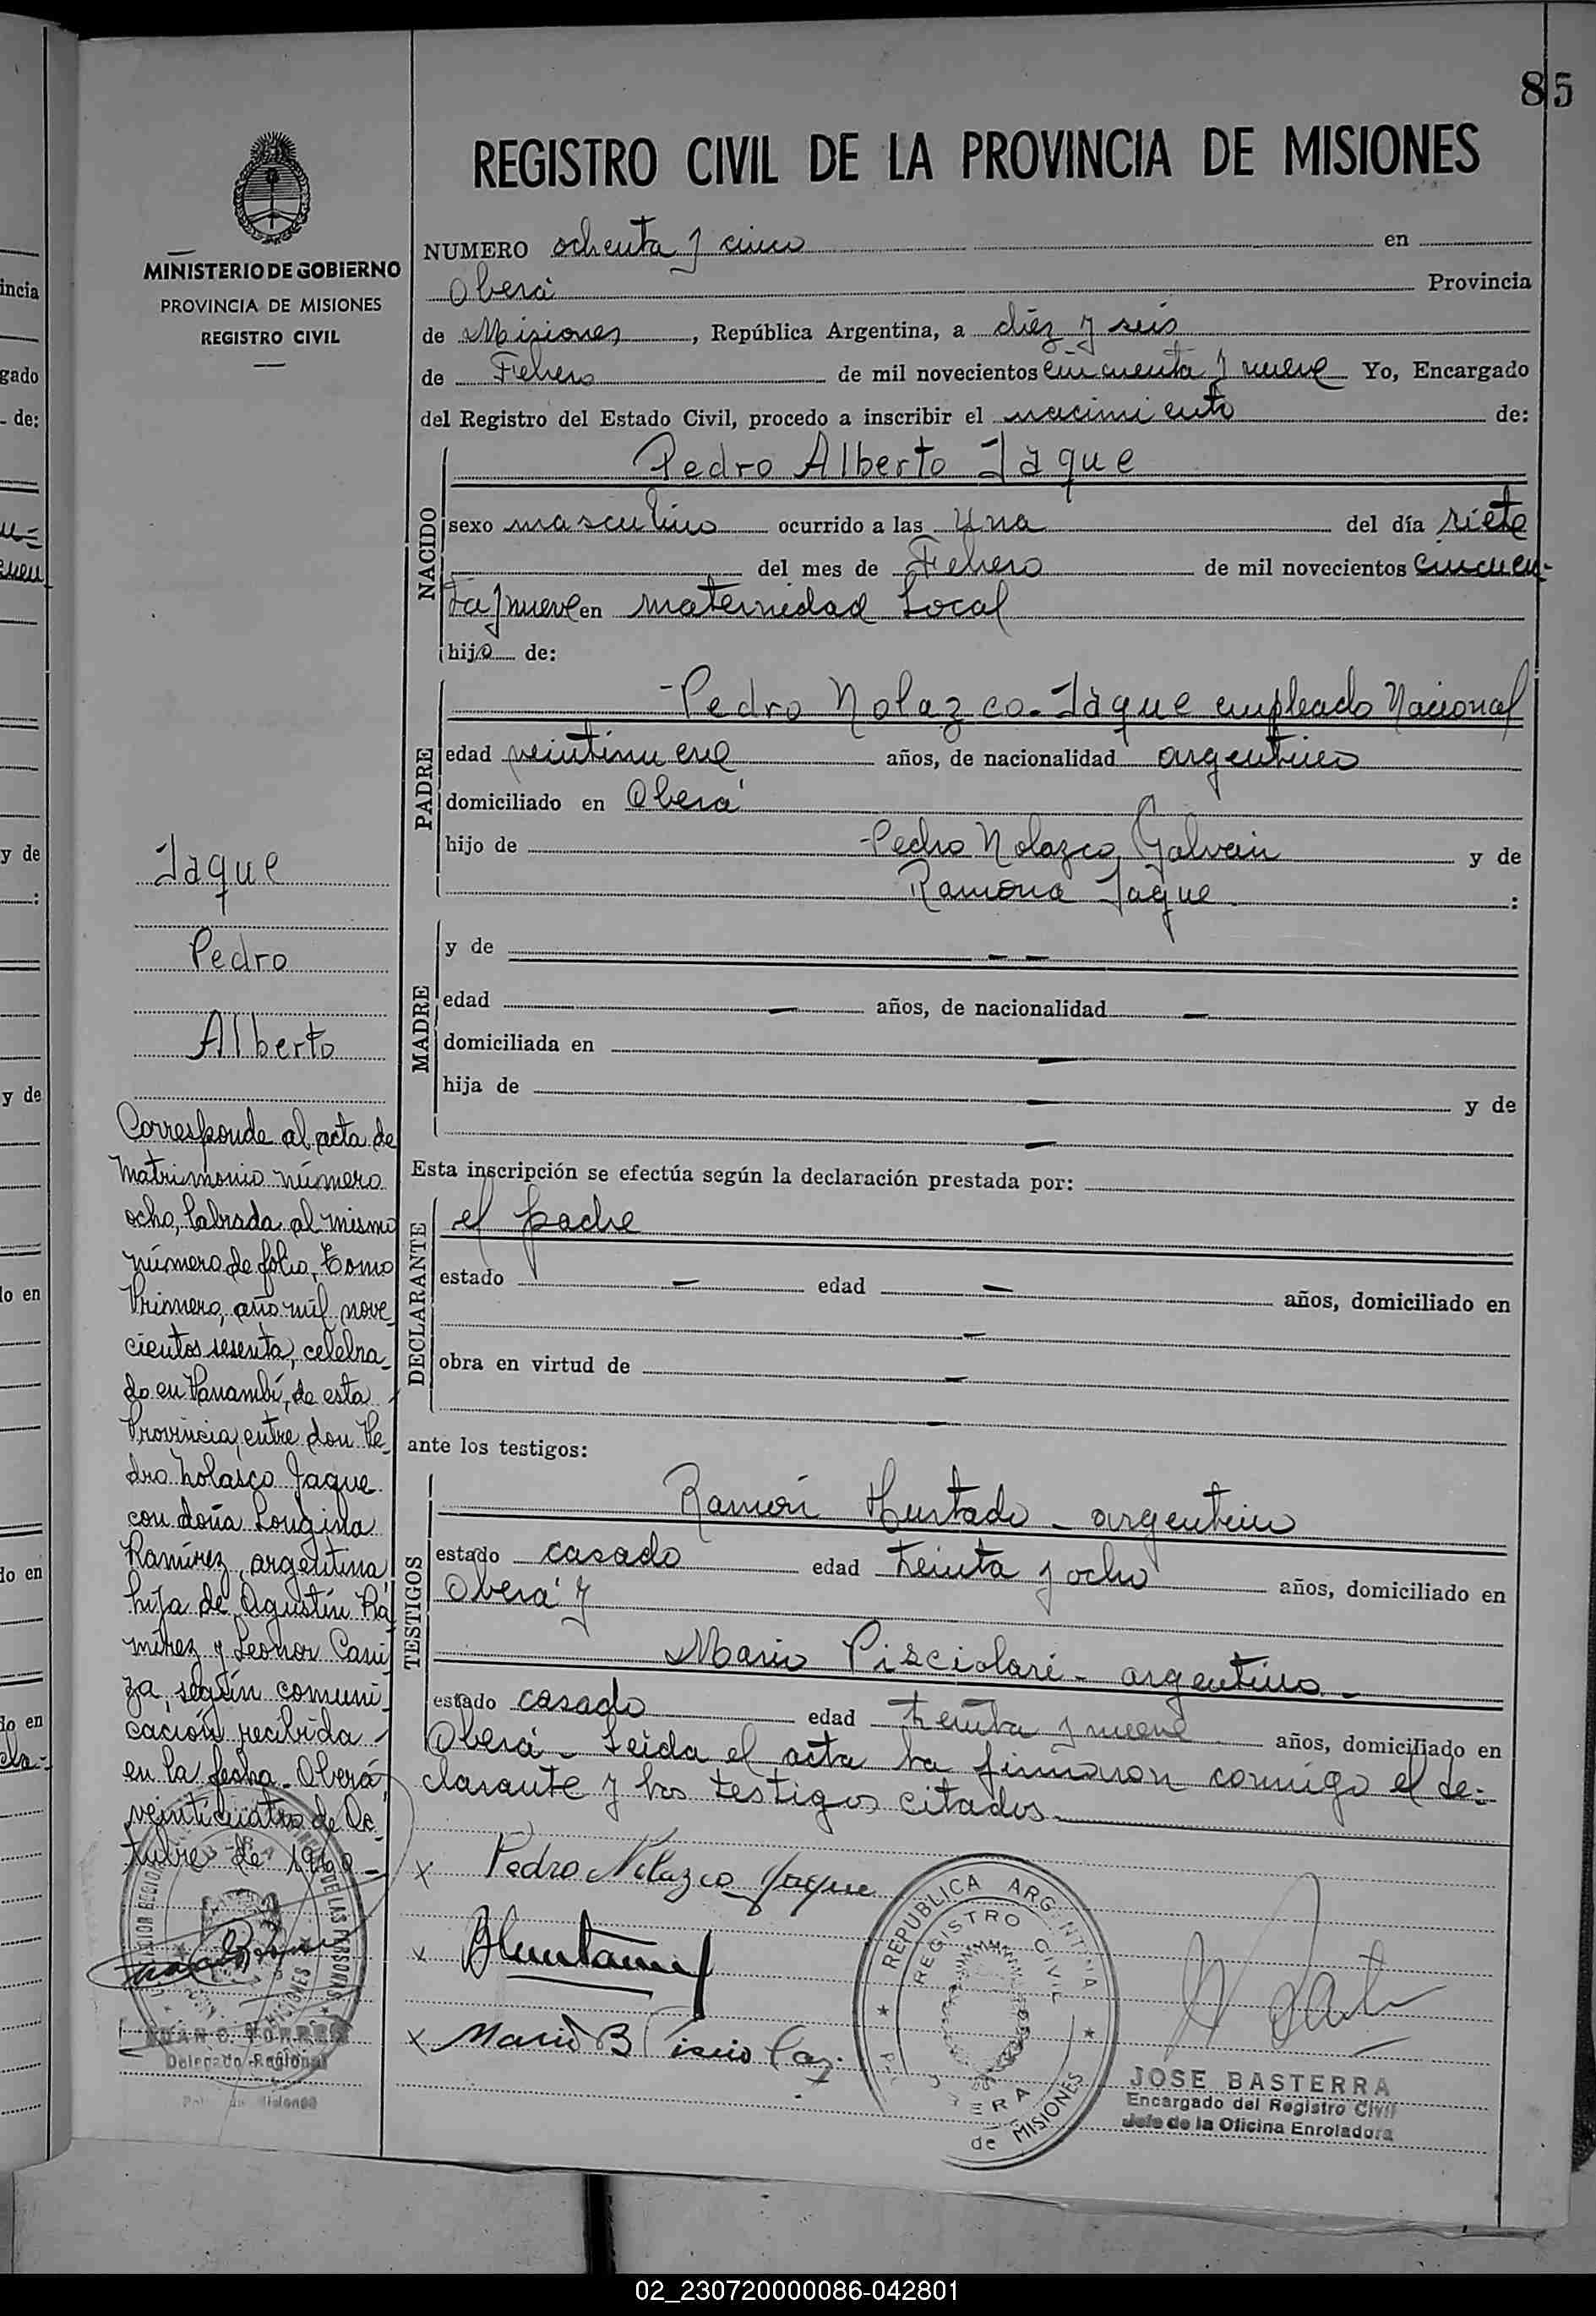 85
REGISTRO CIVIL DE LA PROVINCIA DE MISIONES
MINISTERIO DE GOBIERNO
PROVINCIA DE MISIONES
REGISTRO CIVIL
NUMERO ochenta y cinco en
Oberá Provincia
de Misiones, República Argentina, a diéz y seis
de Febrero de mil novecientos cincuenta y nueve Yo, Encargado
del Registro del Estado Civil, procedo a inscribir el nacimiento de:
NACIDO
Pedro Alberto Jaque
sexo masculino ocurrido a las Una del día siete
del mes de Febrero de mil novecientos cincuen-
ta y nueve en maternidad Local
hijo de:
PADRE
Pedro Nolazco Jaque empleado Nacional
edad veintinueve años, de nacionalidad argentino
domiciliado en Oberá
hijo de Pedro Nolazco Galván y de
Ramona Jaque :
MADRE
y de — —
edad — años, de nacionalidad —
domiciliada en —
hija de — y de
—
Esta inscripción se efectúa según la declaración prestada por:
DECLARANTE
el padre
estado — edad — años, domiciliado en
—
obra en virtud de —
—
ante los testigos:
TESTIGOS
Ramón Hurtado - argentino
estado casado edad treinta y ocho años, domiciliado en
Oberá y
Mario Pisciolari - argentino -
estado casado edad treinta y nueve años, domiciliado en
Oberá - Leida el acta la firmaron conmigo el de-
clarante y los testigos citados.
x Pedro Nolazco Jaque
x
x Mario B
Jaque
Pedro
Alberto
Corresponde al acta de
Matrimonio número
ocho, labrada al mismo
número de folio, Tomo
Primero, año mil nove-
cientos sesenta, celebra-
do en Panambí, de esta
Provincia, entre don Pe-
dro Nolasco Jaque
con doña Longina
Ramírez, argentina
hija de Agustín Ra
mírez y Leonor Cani
za, según comuni
cación recibida
en la fecha. Oberá
veinticuatro de Oc-
tubre de 1969 -
Delegado Regional
REPUBLICA ARGENTINA
REGISTRO CIVIL
OBERA
de MISIONES
JOSE BASTERRA
Encargado del Registro Civil
Jefe de la Oficina Enroladora
incia
gado
de:
y de
:
y de
lo en
do en
lo en
02_230720000086-042801